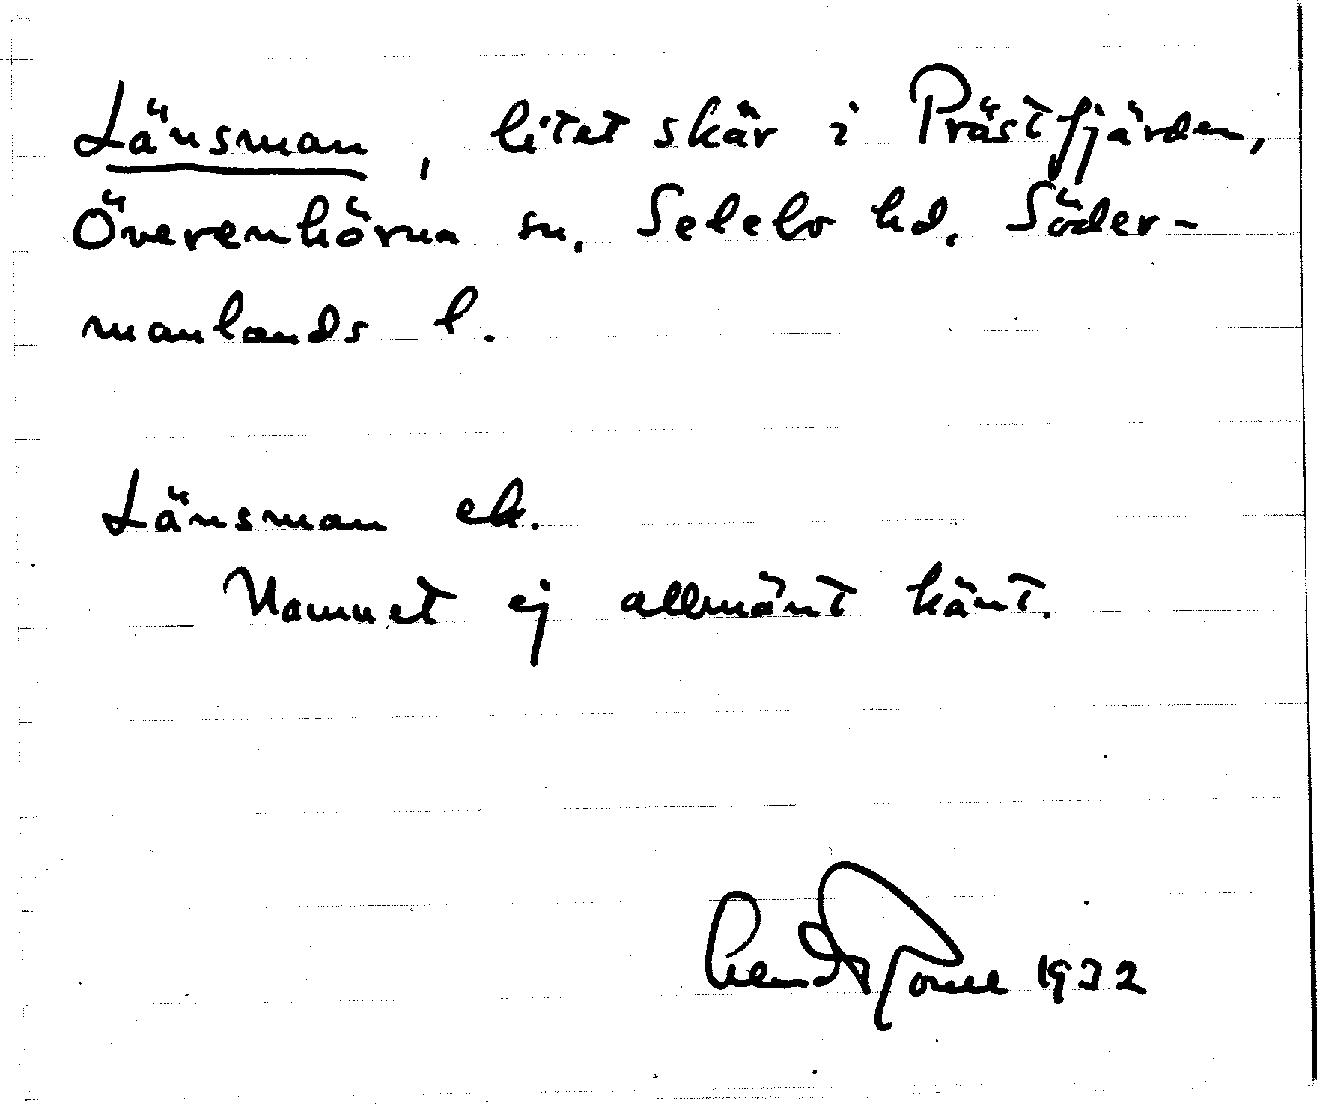 Länsman, litet skär i Prästfjärden,
Överenhörna sn. Selebo hd. Söder-
manlands l.
Länsman ek.
Namnet ej allmänt känt.
1932